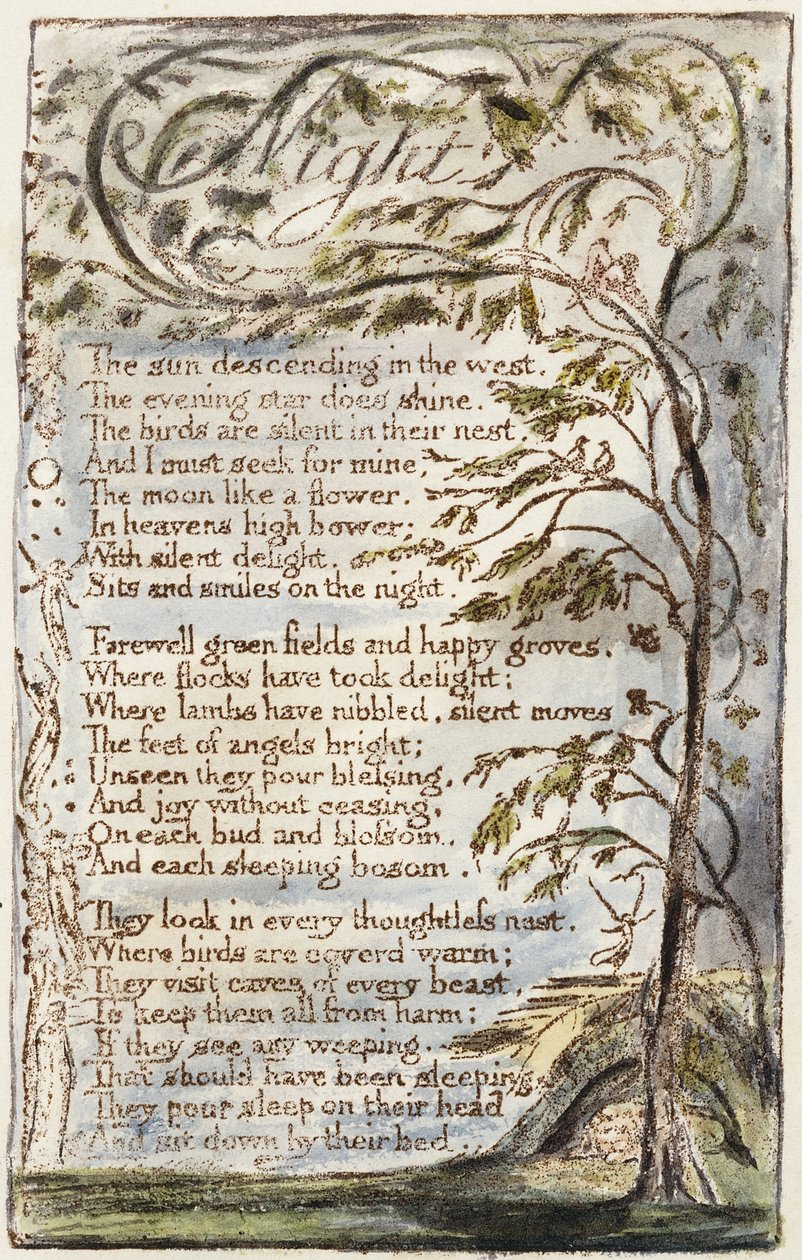 Night
The sun descending in the west.
The evening star does shine.
The birds are silent in their nest.
And I must seek for mine,
The moon like a flower.
In heavens high bower;
With silent delight.
Sits and smiles on the night.
Farewell green fields and happy groves.
Where flocks have took delight;
Where lambs have nibbled, silent moves
The feet of angels bright;
Unseen they pour bleſsing.
And joy without ceasing,
On each bud and bloſsom.
And each sleeping bosom.
They look in every thoughtleſs nest.
Where birds are coverd warm;
They visit caves of every beast.
To keep them all from harm;
If they see any weeping.
That should have been sleeping
They pour sleep on their head
And sit down by their bed.